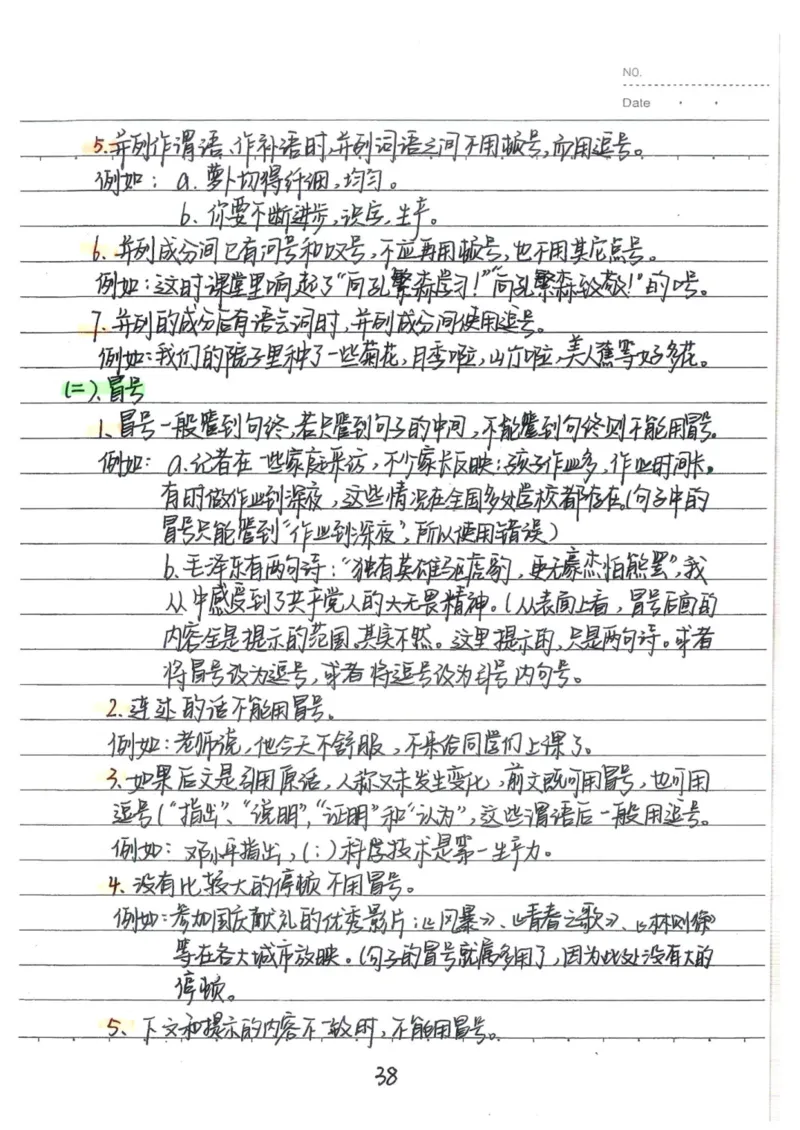 NO.
Date
5.并列作谓语、作补语时,并列词语之间不用顿号,而用逗号。
例如: a.萝卜切得纤细,均匀。
b、你要不断进步,识字,生产。
6、并列成分间已有问号和叹号,不应再用顿号,也不用其它点号。
例如:这时课堂里响起了“向孔繁森学习!”“向孔繁森致敬!”的口号。
7、并列的成分后有语气词时,并列成分间使用逗号。
例如:我们的院子里种了一些菊花,月季啦,山竹啦,美人蕉等好多花。
(二)、冒号
1、冒号一般管到句终,若只管到句子的中间,不能管到句终则不能用冒号。
例如: a.记者在一些家庭采访,不少家长反映:孩子作业多,作业时间长。
有时做作业到深夜,这些情况在全国多处学校都存在。(句子中的
冒号只能管到“作业到深夜”,所以使用错误)
b.毛泽东有两句诗:“独有英雄驱虎豹,更无豪杰怕熊罴”,我
从中感受到了共产党人的大无畏精神。(从表面上看,冒号后面的
内容全是提示的范围。其实不然。这里提示的,只是两句诗。或者
将冒号改为逗号,或者将逗号改为引号内句号。
2.连述的话不能用冒号。
例如:老师说,他今天不舒服,不来给同学们上课了。
3.如果后文是引用原话,人称又未发生变化,前文既可用冒号,也可用
逗号(“指出”、“说明”,“证明”和“认为”,这些谓语后一般用逗号。
例如: 邓小平指出,(:)科学技术是第一生产力。
4.没有比较大的停顿不用冒号。
例如:参加国庆献礼的优秀影片:《风暴》、《青春之歌》、《林则徐》
等在各大城市放映。(句子的冒号就属多用了,因为此处没有大的
停顿。
5、下文和提示的内容不一致时,不能用冒号。
38